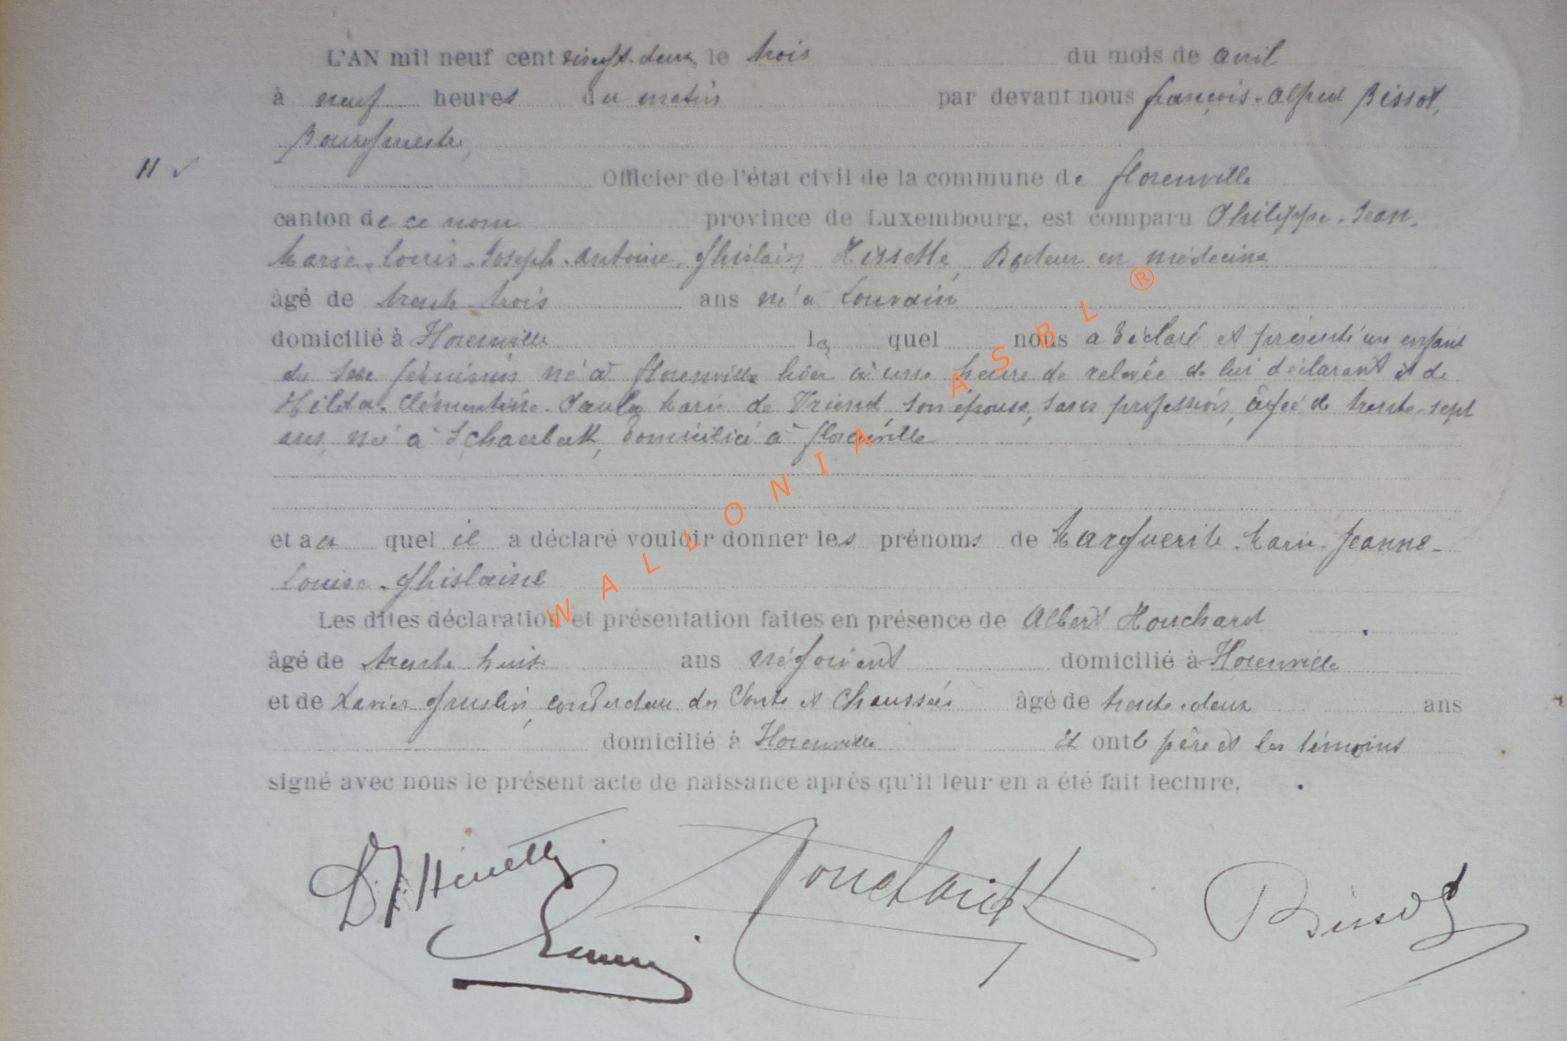 L'AN mil neuf cent vingt-deux le trois du mois de avril
à neuf heures du matin par devant nous françois-Alfred Bissot,
Bourgmestre,
H Officier de l'état civil de la commune de florenville
canton de ce nom province de Luxembourg, est comparu Philippe-Jean-
Marie-Louis-Joseph-Antoine-Ghislain Hissette, Docteur en médecine
âgé de trente-trois ans né à Louvain
domicilié à Florenville lequel nous a déclaré et présenté un enfant
du sexe féminin né à florenville hier à une heure de relevée de lui déclarant et de
Hilda-Clémentine-Paula Marie de Vriend, son épouse, sans profession, âgée de trente-sept
ans, né à Schaerbeek, domicilié à florenville
et au quel il a déclaré vouloir donner les prénoms de Marguerite-Marie-Jeanne-
Louise-Ghislaine
Les dites déclaration et présentation faites en présence de Albert Houchard
âgé de trente huit ans négociant domicilié à Florenville
et de Xavier conducteur des Ponts et Chaussées âgé de trente-deux ans
domicilié à Florenville et ont le père et les témoins
signé avec nous le présent acte de naissance après qu'il leur en a été fait lecture.
Dr Hissette Houchard Bissot
WALLONIA ASBL ®